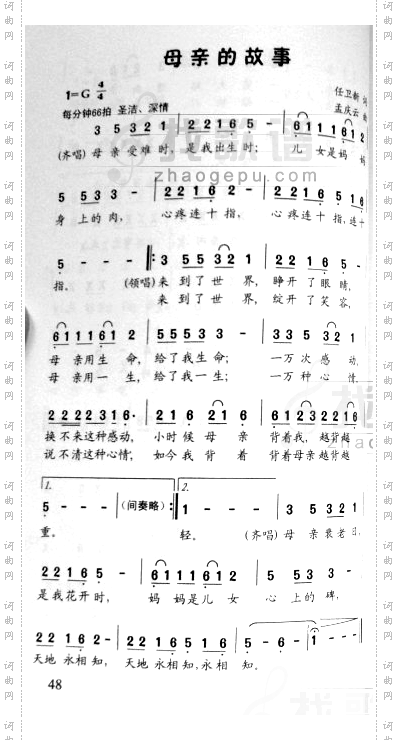 母亲的故事
1=G 4/4
每分钟66拍 圣洁、深情
任卫新 词
孟庆云 曲
3 5 5321 | 22165 - | 6111612
(齐唱)母 亲 受难时, 是我出生时; 儿 女是妈妈
zhaogepu.com
5 553 - | 2216 2 - | 221656
身 上的肉, 心疼连十指, 心疼连十指,连十
5 - - - |: 3 55321 | 22165 -
指。 (领唱)来 到了世 界, 睁开了眼 睛,
来 到了世 界, 绽开了笑容,
6111612 | 55533 - | 335321
母 亲用生 命, 给了我生命; 一万次感 动,
母 亲用一 生, 给了我一生; 一万种心 情,
22223216· | 22 16 21 6 | 221 2216
换不来这种感动, 小时候 母 亲 背着我,越背越
说不清这种心情, 如今我 背 着 背着母亲越背越
1. 2.
5 - - (间奏略) :| 1 - - - | 3 5 5321
重。 轻。 (齐唱)母 亲 衰老时,
22165 - | 6111612 | 5 553 -
是我花开时, 妈 妈是儿 女 心 上的碑,
22 165 - | 22 1651 6 | 5 - 6 - | 1 - - -
天地 永相知, 天地 永相知,永相 知。
48
词曲网
词曲网
词曲网
词曲网
词曲网
词曲网
词曲网
词曲网
词曲网
词曲网